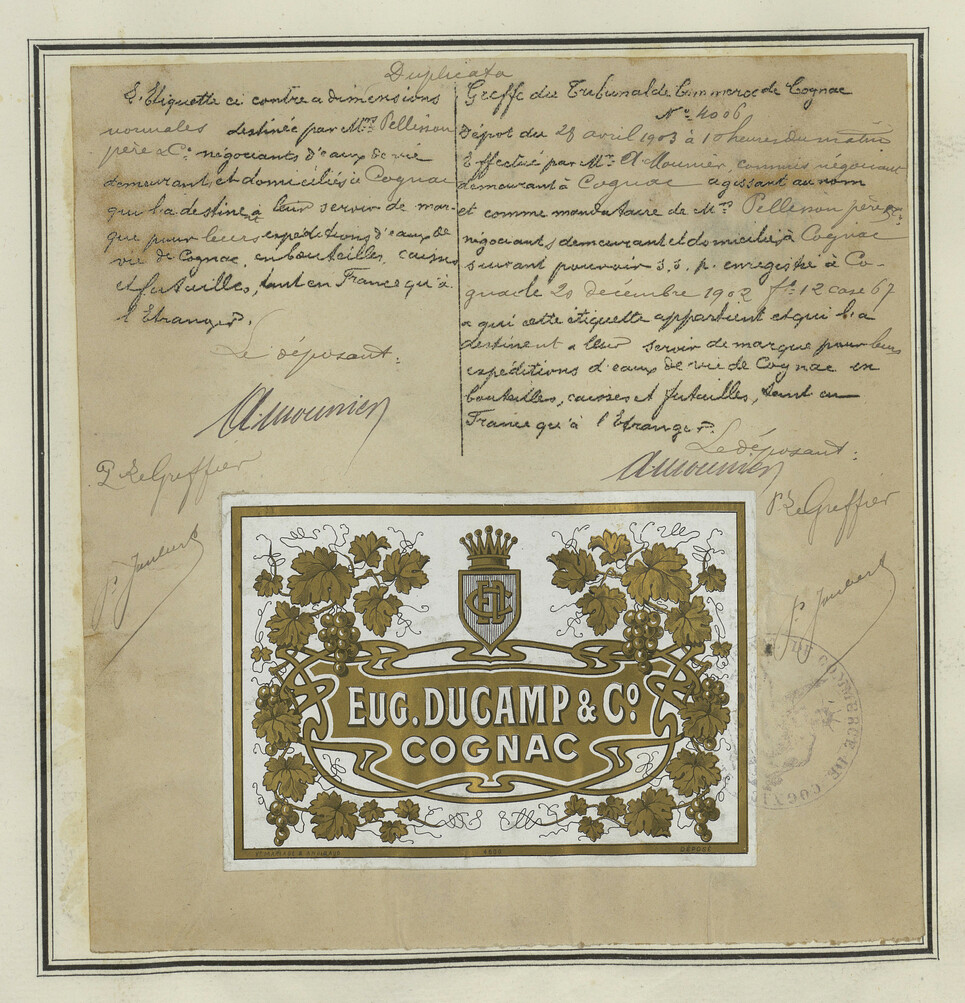 Duplicata
L'Etiquette ci contre a dimensions
normales destinée par Mrs Pellisson
père & Co négociants d'eaux de vie
demeurant et domiciliés à Cognac
qui l'a destine à leur servir de mar-
que pour leurs expéditions d'eaux de
vie de Cognac, en bouteilles, caisses
et futailles, tant en France qu'à
l'Etranger.
Le déposant:
A. Mounier
Pr Le Greffier
P. Joubert
Greffe du Tribunal de Commerce de Cognac
No 4006
Dépot du 28 avril 1903 à 10 heures du matin
Effectué par Mr A. Mounier, commis négociant
demeurant à Cognac agissant au nom
et comme mandataire de Mrs Pellisson père & Co
négociants demeurant et domiciliés à Cognac
suivant pouvoir s.s.p. enregistré à Co-
gnac le 20 décembre 1902 fo 12 case 67
a qui cette étiquette appartient et qui l'a
destinent a leur servir de marque pour leurs
expéditions d'eaux de vie de Cognac en
bouteilles, caisses et futailles, tant en
France qu'à l'Etranger.
Le déposant:
A. Mounier
Pr Le Greffier
P. Joubert
EUG. DUCAMP & Co
COGNAC
DÉPOSÉ
DE COMMERCE DE COGNAC